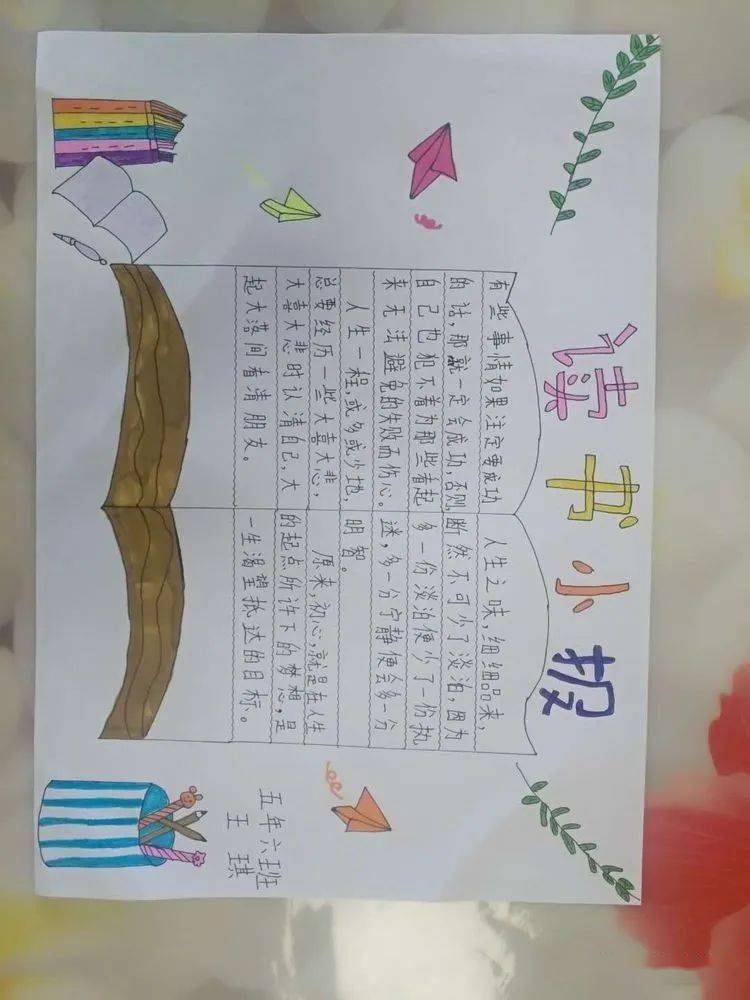 读书小报
有些事情如果注定要成功
的话,那就一定会成功,否则,
自己也犯不着为那些看起
来无法避免的失败而伤心。
人生一程,或多或少地,
总要经历一些大喜大悲,
大喜大悲时认清自己,大
起大落间看清朋友。
人生之味,细细品来,
断然不可少了淡泊,因为
多一份淡泊便少了一份执
迷,多一分宁静便会多一分
明智。
原来,初心,就是在人生
的起点所许下的梦想,是
一生渴望抵达的目标。
五年六班
王琪